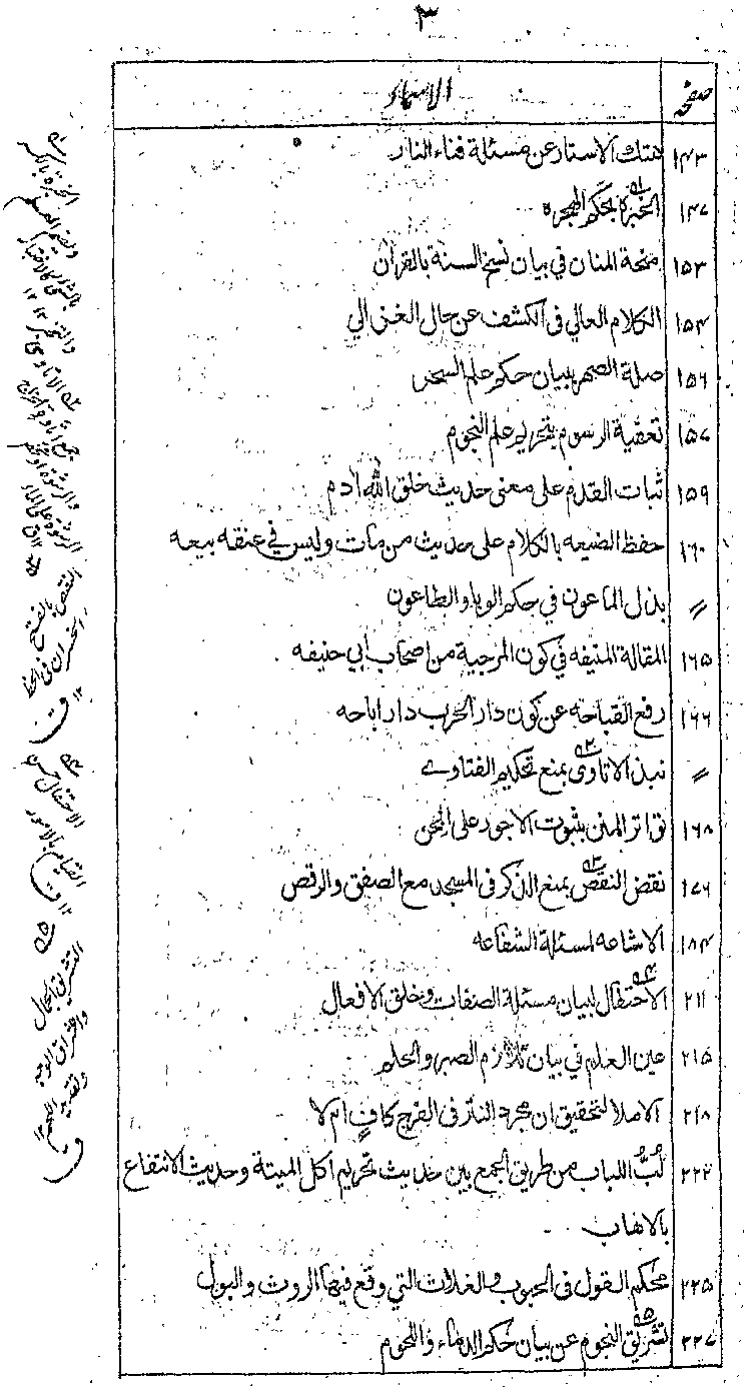 ٣
صفحه الاسماء
١٤٣ هتك الاستار عن مسئلة فناء النار
١٤٧ الخبرة بحكم الهجره
١٥٣ منحة المنان في بيان نسخ السنة بالقران
١٥٤ الكلام العالي في الكشف عن حال الغزالي
١٥٦ صلة الصهر ببيان حكم علم السحر
١٥٧ تعفية الرسوم بتحرير علم النجوم
١٥٩ ثبات القدم على معنى حديث خلق الله ادم
١٦٠ حفظ الضيعه بالكلام على حديث من مات وليس في عنقه بيعه
〃 بذل الماعون في حكم الوبا والطاعون
١٦٥ المقالة المنيفه في كون المرجية من اصحاب ابي حنيفه
١٦٦ رفع القباحه عن كون دار الحرب دار اباحه
〃 نبذ الاتاوى بمنع تحكيم الفتاوے
١٦٨ تواتر المنن بثبوت الاجور على المحن
١٧٦ نقض النقص بمنع الذكر في المسجد مع الصفق والرقص
١٨٤ الاشاعه لمسئلة الشفاعه
٢١١ الاحتفال لبيان مسئلة الصفات وخلق الافعال
٢١٥ عين العلم في بيان تلازم الصبر والحلم
٢١٨ الاملا لتحقيق ان مجرد النذر في الفرج كافٍ ام لا
٢٢٢ لُبُّ اللباب من طريق الجمع بين حديث تحريم اكل الميتة وحديث الانتفاع
بالاهاب
٢٢٥ محكم القول في الحبوب والغلات التي وقع فيها الروث والبول
٢٢٧ تشريق النجوم عن بيان حكم الدماء واللحوم
الخبرة بالكسر
النقص بالفتح
الخسران في الحظ
١٢ ق
الاحتفال حسن
القيام بالامور
١٢ ق
التشريق الجمال
ق